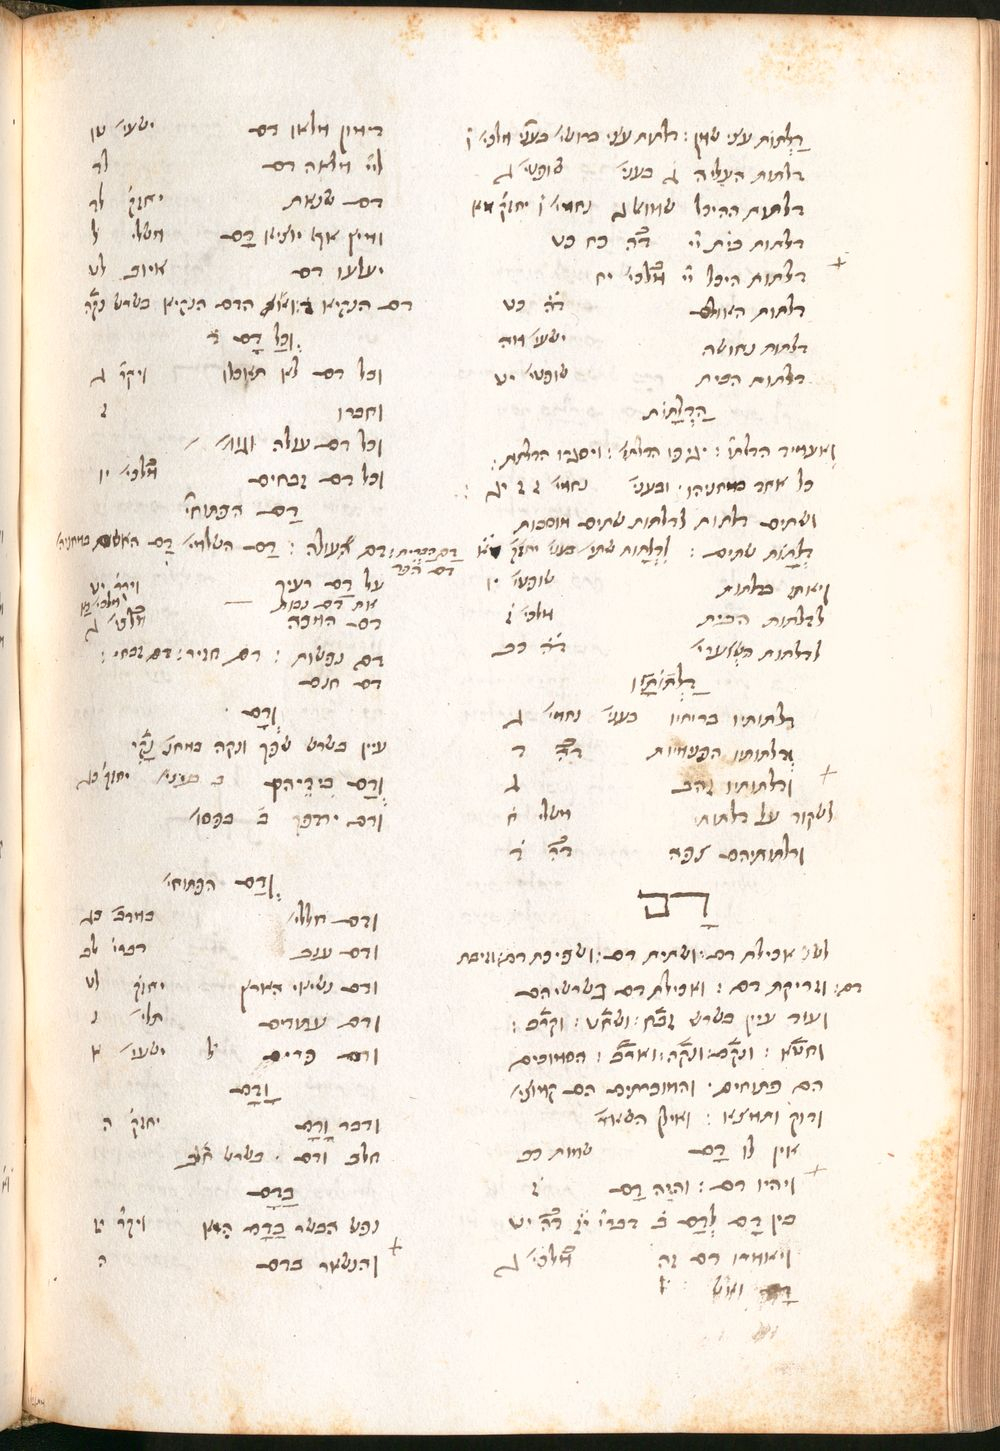 דַלְתוֹת עצי שמן : דלתות עצי ברושי׳ בעני׳ מלכי׳ ו
דלתות העליה ג בעני׳ שופטי׳ ג
דלתות ההיכל שמוא׳ ג נחמי׳ ו יחזק׳ מא
דלתות בית יי׳ דה כח כט
דלתות היכל יי׳ מלכי׳ יח
דלתות האולם דה כט
דלתות נחושה ישעי׳ מה
דלתות הבית שופטי׳ יט
הַדְלָתוֹת
ואעמיד הדלתו׳ : יגיפו הדלתו׳ : ויסגרו הדלתות :
כל אחד במחניהו׳ ובעני׳ נחמי׳ ז ז יג
ושתים דלתות לדלתות שתים מוסבות
דְלָתוֹת שתים : לַדְלָתוֹת שתי׳ בעני׳ יחזק׳ מא
ויאחז בדלתות שופטי׳ יו
לדלתות הבית מלכי׳ ז
לדלתות השערי׳ דה כב
דַלְתוֹתָיו
דלתותיו בריחיו בעני׳ נחמי׳ ג
ודלתותיו הפנימיות דה ד
ודלתותיו זהב ג
לשקוד על דלתותי משלי ח
ודלתותיהם צפה דה ד
דָם
לשו׳ אכילת דם : ושתית דם : ושפיכת דם : וזיבת
דם : וזריקת דם : ואכילת דם בשרשיהם
ועוד עיין בשרש זבח : ושחט : וקרב :
וחטא : ונקם : ונקה : וארב : הסמוכים
הם פתוחים . והמוכרתים הם קמוצי׳
ודוק ותמצא : ואילו השאר
אין לו דָם שמות כב
ויהיו דם : והָיָה דָם ז
בין דָם לְדָם ב דברי׳ יז דה יט
ויאמרו דם זה מלכי׳ ג
דָם ואש
דימון מלאו דם ישעי׳ טו
ליי׳ מלאה דם לד
דם שנאת יחזק׳ לה
ומיץ אף יוציא דָם משלי ל
יעלעו דם איוב לט
דם הנקיא הדם הנקיא בשרש נקה
וְכָל דָם ד
וכל דם לא תאכלו ויקר׳ ג
וחברו ז
וכל דם עולה וגומ׳
וכל דם זבחים מלכי׳ יו
דַם הפתוחי׳
דַם הברית : דם העולה : דַם השלמי׳ דַם האשם במחניה׳
דם הפר
על דַם רעיך ויקר׳ יט
את דַם נבות מלכי׳ כא
דם המכה מלכי׳ ג
דם נפשות : דם חזיר : דם זבחי׳ :
דם חנם
וְדָם
עיין בשרש שפך ונקה במחנ׳ נָקִי
וְדָם בידיהם ב בעני׳ יחזק׳ כג
ודם ירדפך ב בפסו׳
וְדַם הפתוחי׳
ודם חללי׳ במדב׳ כג
ודם ענב דברי׳ לב
ודם נשיאי הארץ יחזק׳ לט
ודם עתודים תלי׳ נ
ודם פרים ישעי׳ א
וָדָם
ודבר וָדָם יחזק׳ ה
חלב ודם . בשרש חלב
בַדָם
נפש הבשר בַּדָם הִיא ויקר׳ יז
והנשאר בדם ה